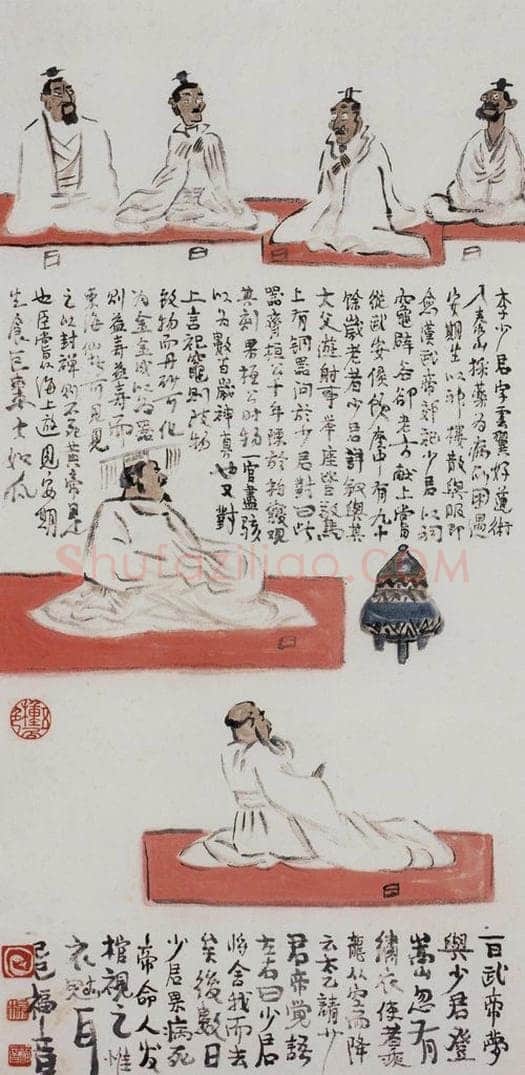 李少君字雲翼好道術
入泰山採藥為病所困遇
安期生以神樓散與服即
愈漢武帝郊祀少君以祠
竈辟谷卻老方獻上嘗
從武安侯飲座中有九十
餘歲老者少君詳叙與其
大父遊射事舉座皆驚
上有銅器問於少君對曰此
器齊桓公十年陳於柏寢視
其刻果桓公時物一宮盡駭
以為數百歲神真也又對
上言祀竈則致物
致物而丹砂可化
為金金成以為器
則益壽益壽而
東海仙者可見見
之以封禪則不死黃帝是
也臣嘗以海上遊見安期
生食巨棗大如瓜
Shufaziliao.COM
一日武帝夢
與少君登
嵩山忽有
繡衣使者乘
龍從空而降
云太乙請少
君帝覺語
左右曰少君
將舍我而去
矣後數日
少君果病死
帝命人發
棺視之惟
衣冠耳